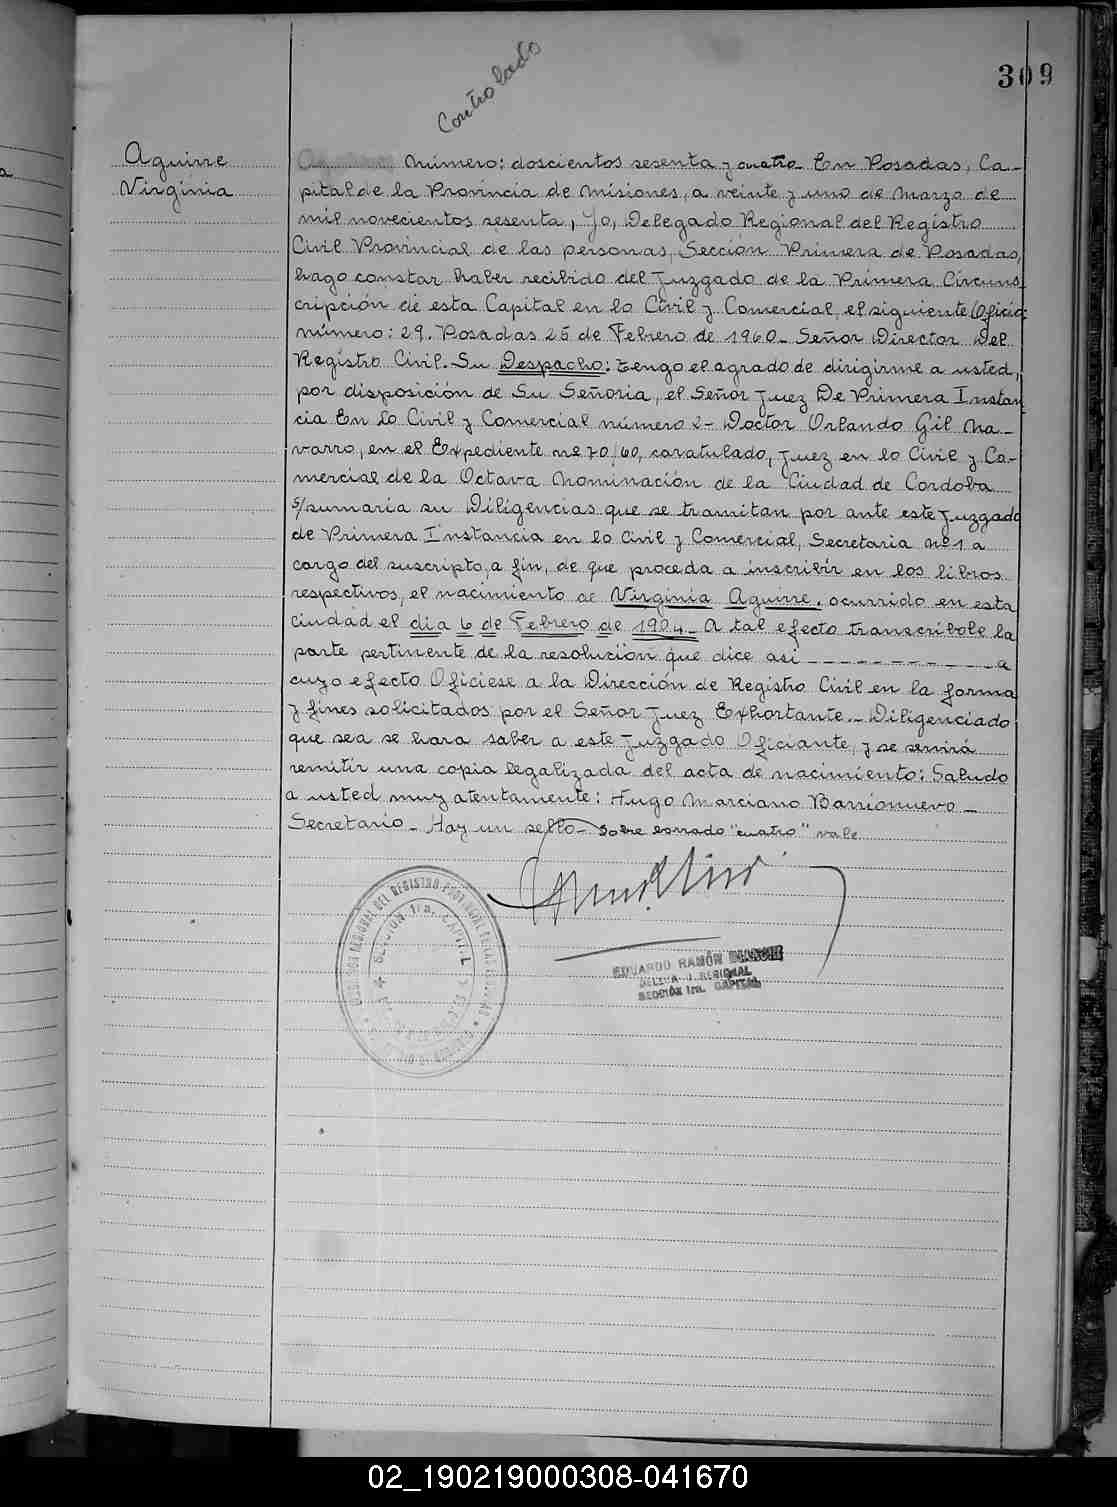 309
Controlado
Aguirre
Virginia
Número: doscientos sesenta y cuatro En Posadas, Ca-
pital de la Provincia de Misiones, a veinte y uno de Marzo de
mil novecientos sesenta, Yo, Delegado Regional del Registro
Civil Provincial de las personas, Sección Primera de Posadas,
hago constar haber recibido del Juzgado de la Primera Circuns
cripción de esta Capital en lo Civil y Comercial, el siguiente Oficio:
número: 29. Posadas 25 de Febrero de 1960_ Señor Director Del
Registro Civil. Su Despacho: tengo el agrado de dirigirme a usted,
por disposición de Su Señoria, el Señor Juez De Primera Instan
cia En lo Civil y Comercial número 2- Doctor Orlando Gil Na-
varro, en el Expediente nº 70/60, caratulado, Juez en lo Civil y Co-
mercial de la Octava Nominación de la Ciudad de Cordoba
s/sumaria su Diligencias que se tramitan por ante este Juzgado
de Primera Instancia en lo Civil y Comercial, Secretaria nº 1 a
cargo del suscripto, a fin, de que proceda a inscribir en los libros
respectivos, el nacimiento de Virginia Aguirre. ocurrido en esta
ciudad el dia 6 de Febrero de 1904_ A tal efecto transcribole la
parte pertinente de la resolución que dice asi ___________ a
cuyo efecto Oficiese a la Dirección de Registro Civil en la forma
y fines solicitados por el Señor Juez Exhortante._ Diligenciado
que sea se hara saber a este Juzgado Oficiante, y se servirá
remitir una copia legalizada del acta de nacimiento: Saludo
a usted muy atentamente: Hugo Marciano Barrionuevo_
Secretario_ Hay un sello_ Sobre borrado "cuatro" vale
EDUARDO RAMÓN
DELEGADO REGIONAL
SECCIÓN 1ra. CAPITAL
SECCION 1ra. CAPITAL
02_190219000308-041670